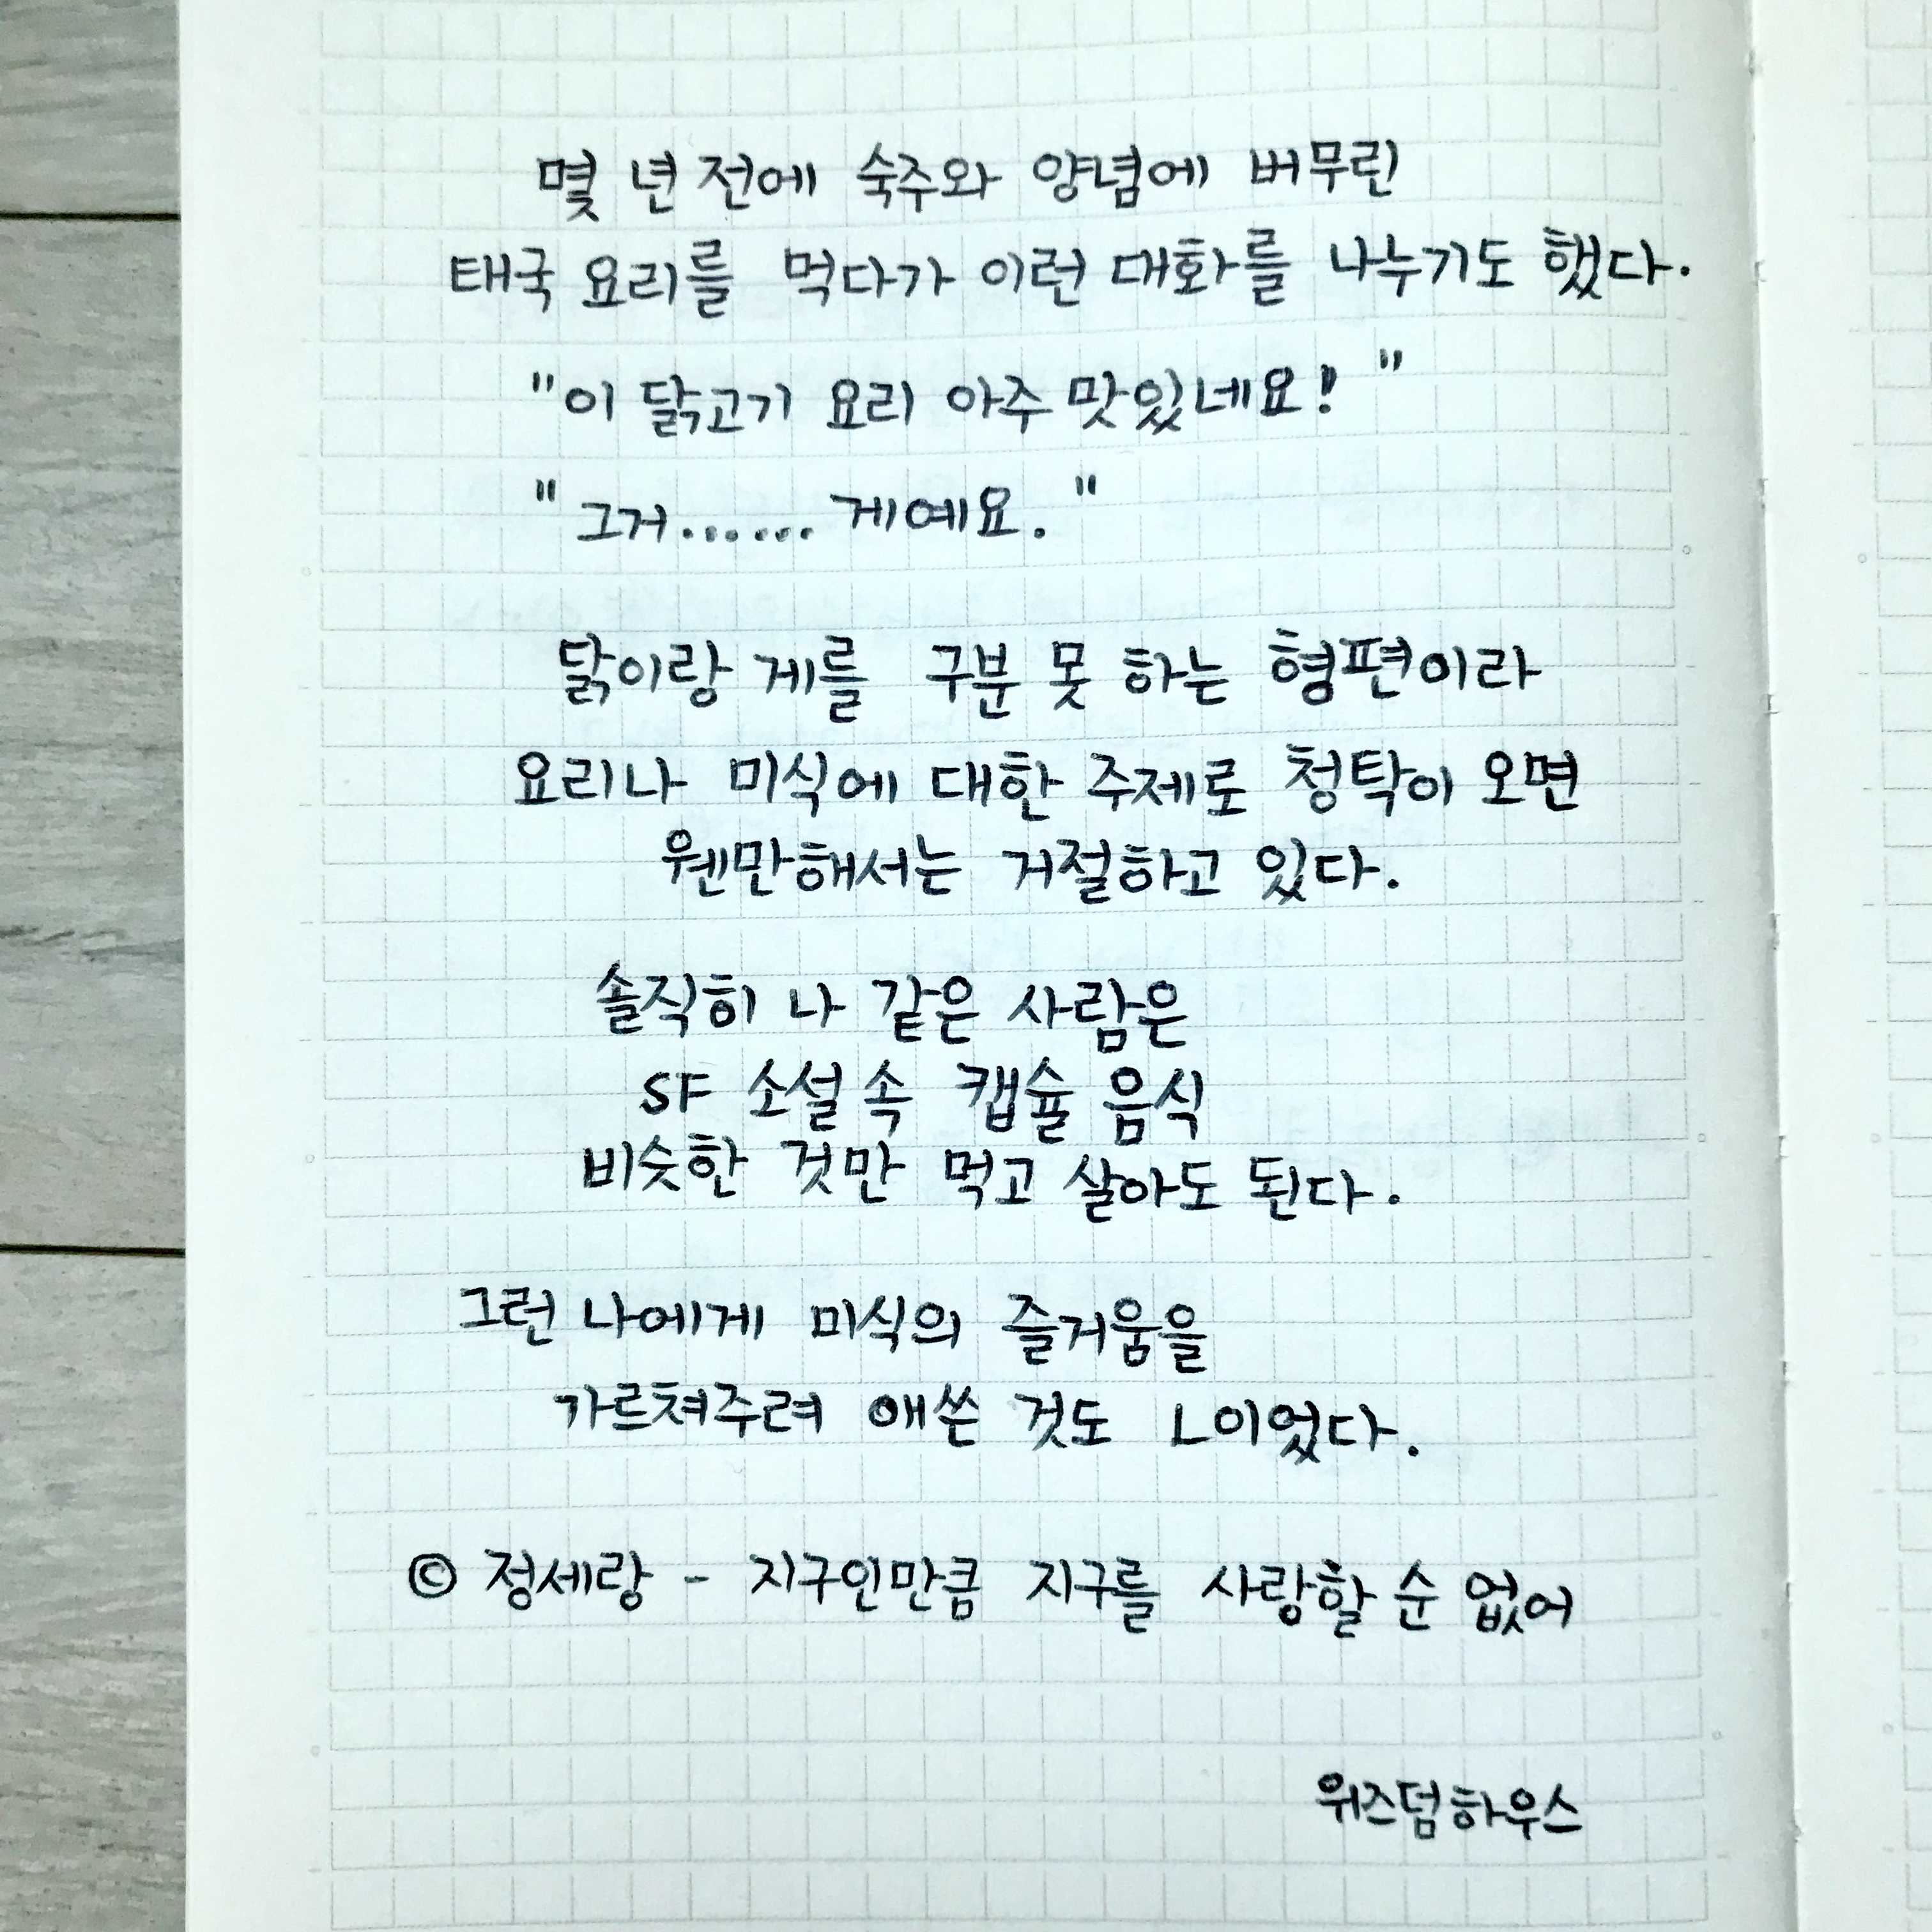 몇 년 전에 숙주와 양념에 버무린
태국 요리를 먹다가 이런 대화를 나누기도 했다.
"이 닭고기 요리 아주 맛있네요!"
"그거...... 게예요."
닭이랑 게를 구분 못 하는 형편이라
요리나 미식에 대한 주제로 청탁이 오면
웬만해서는 거절하고 있다.
솔직히 나 같은 사람은
SF 소설 속 캡슐 음식
비슷한 것만 먹고 살아도 된다.
그런 나에게 미식의 즐거움을
가르쳐주려 애쓴 것도 L이었다.
© 정세랑 - 지구인만큼 지구를 사랑할 순 없어
위즈덤하우스